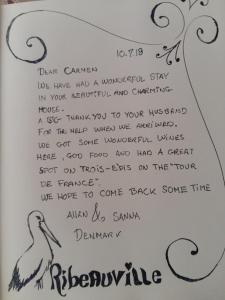 10.7.18
DEAR CARMEN
WE HAVE HAD A WONDERFUL STAY
IN YOUR BEAUTIFUL AND CHARMING
HOUSE.
A BIG THANK YOU TO YOUR HUSBAND
FOR THE HELP WHEN WE ARRIVED.
WE GOT SOME WONDERFUL WINES
HERE, GOD FOOD AND HAD A GREAT
SPOT ON TROIS-EPIS ON THE "TOUR
DE FRANCE".
WE HOPE TO COME BACK SOME TIME
ALLAN & SANNA
DENMARK
Ribeauville